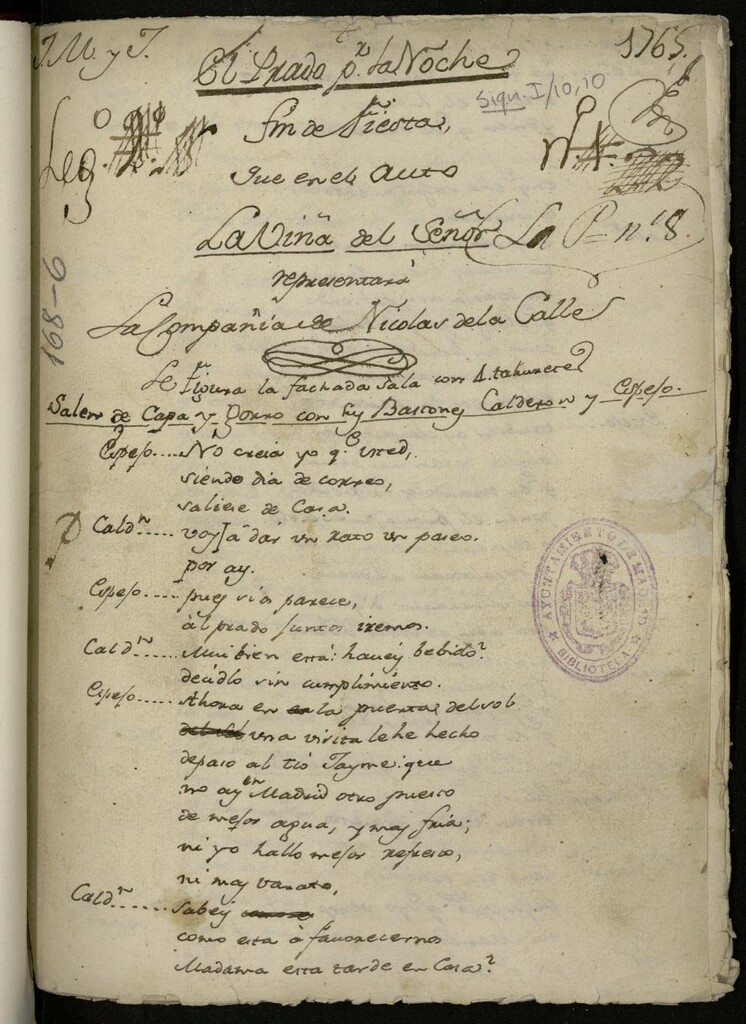 J. M. y J.
1765.
El Prado p.r la Noche
Siqn. I/10,10
fin de Fiesta,
Leg.o
N.
que en el Auto
La Viña del Señor
La P.e n.º 8.
representará
168-6
La Compañia de Nicolas de la Calle
Se figura la fachada sala con 4. taburetes
Salen de Capa y Gorro con sus Bastones Calderon y Espejo.
Espejo.... No creia yo q.e usted,
siendo dia de correo,
saliese de Casa.
Cald.n.... voy â dar un rato un paseo.
por ay.
Espejo.... pues si os parece,
âl prado juntos iremos.
Cald.n.... Mui bien está: haveis bebido?
decidlo sin cumplimiento.
Espejo.... Ahora en la puerta del sol
una visita le he hecho
de paso al tio Jayme: que
no ay en Madrid otro puesto
de mejor agua, y mas fria;
ni yo hallo mejor refresco,
ni mas varato,
Cald.n.... Sabeis
como esta â favorecernos
Madama esta tarde en Casa?
AYUNTAMIENTO DE MADRID
BIBLIOTECA